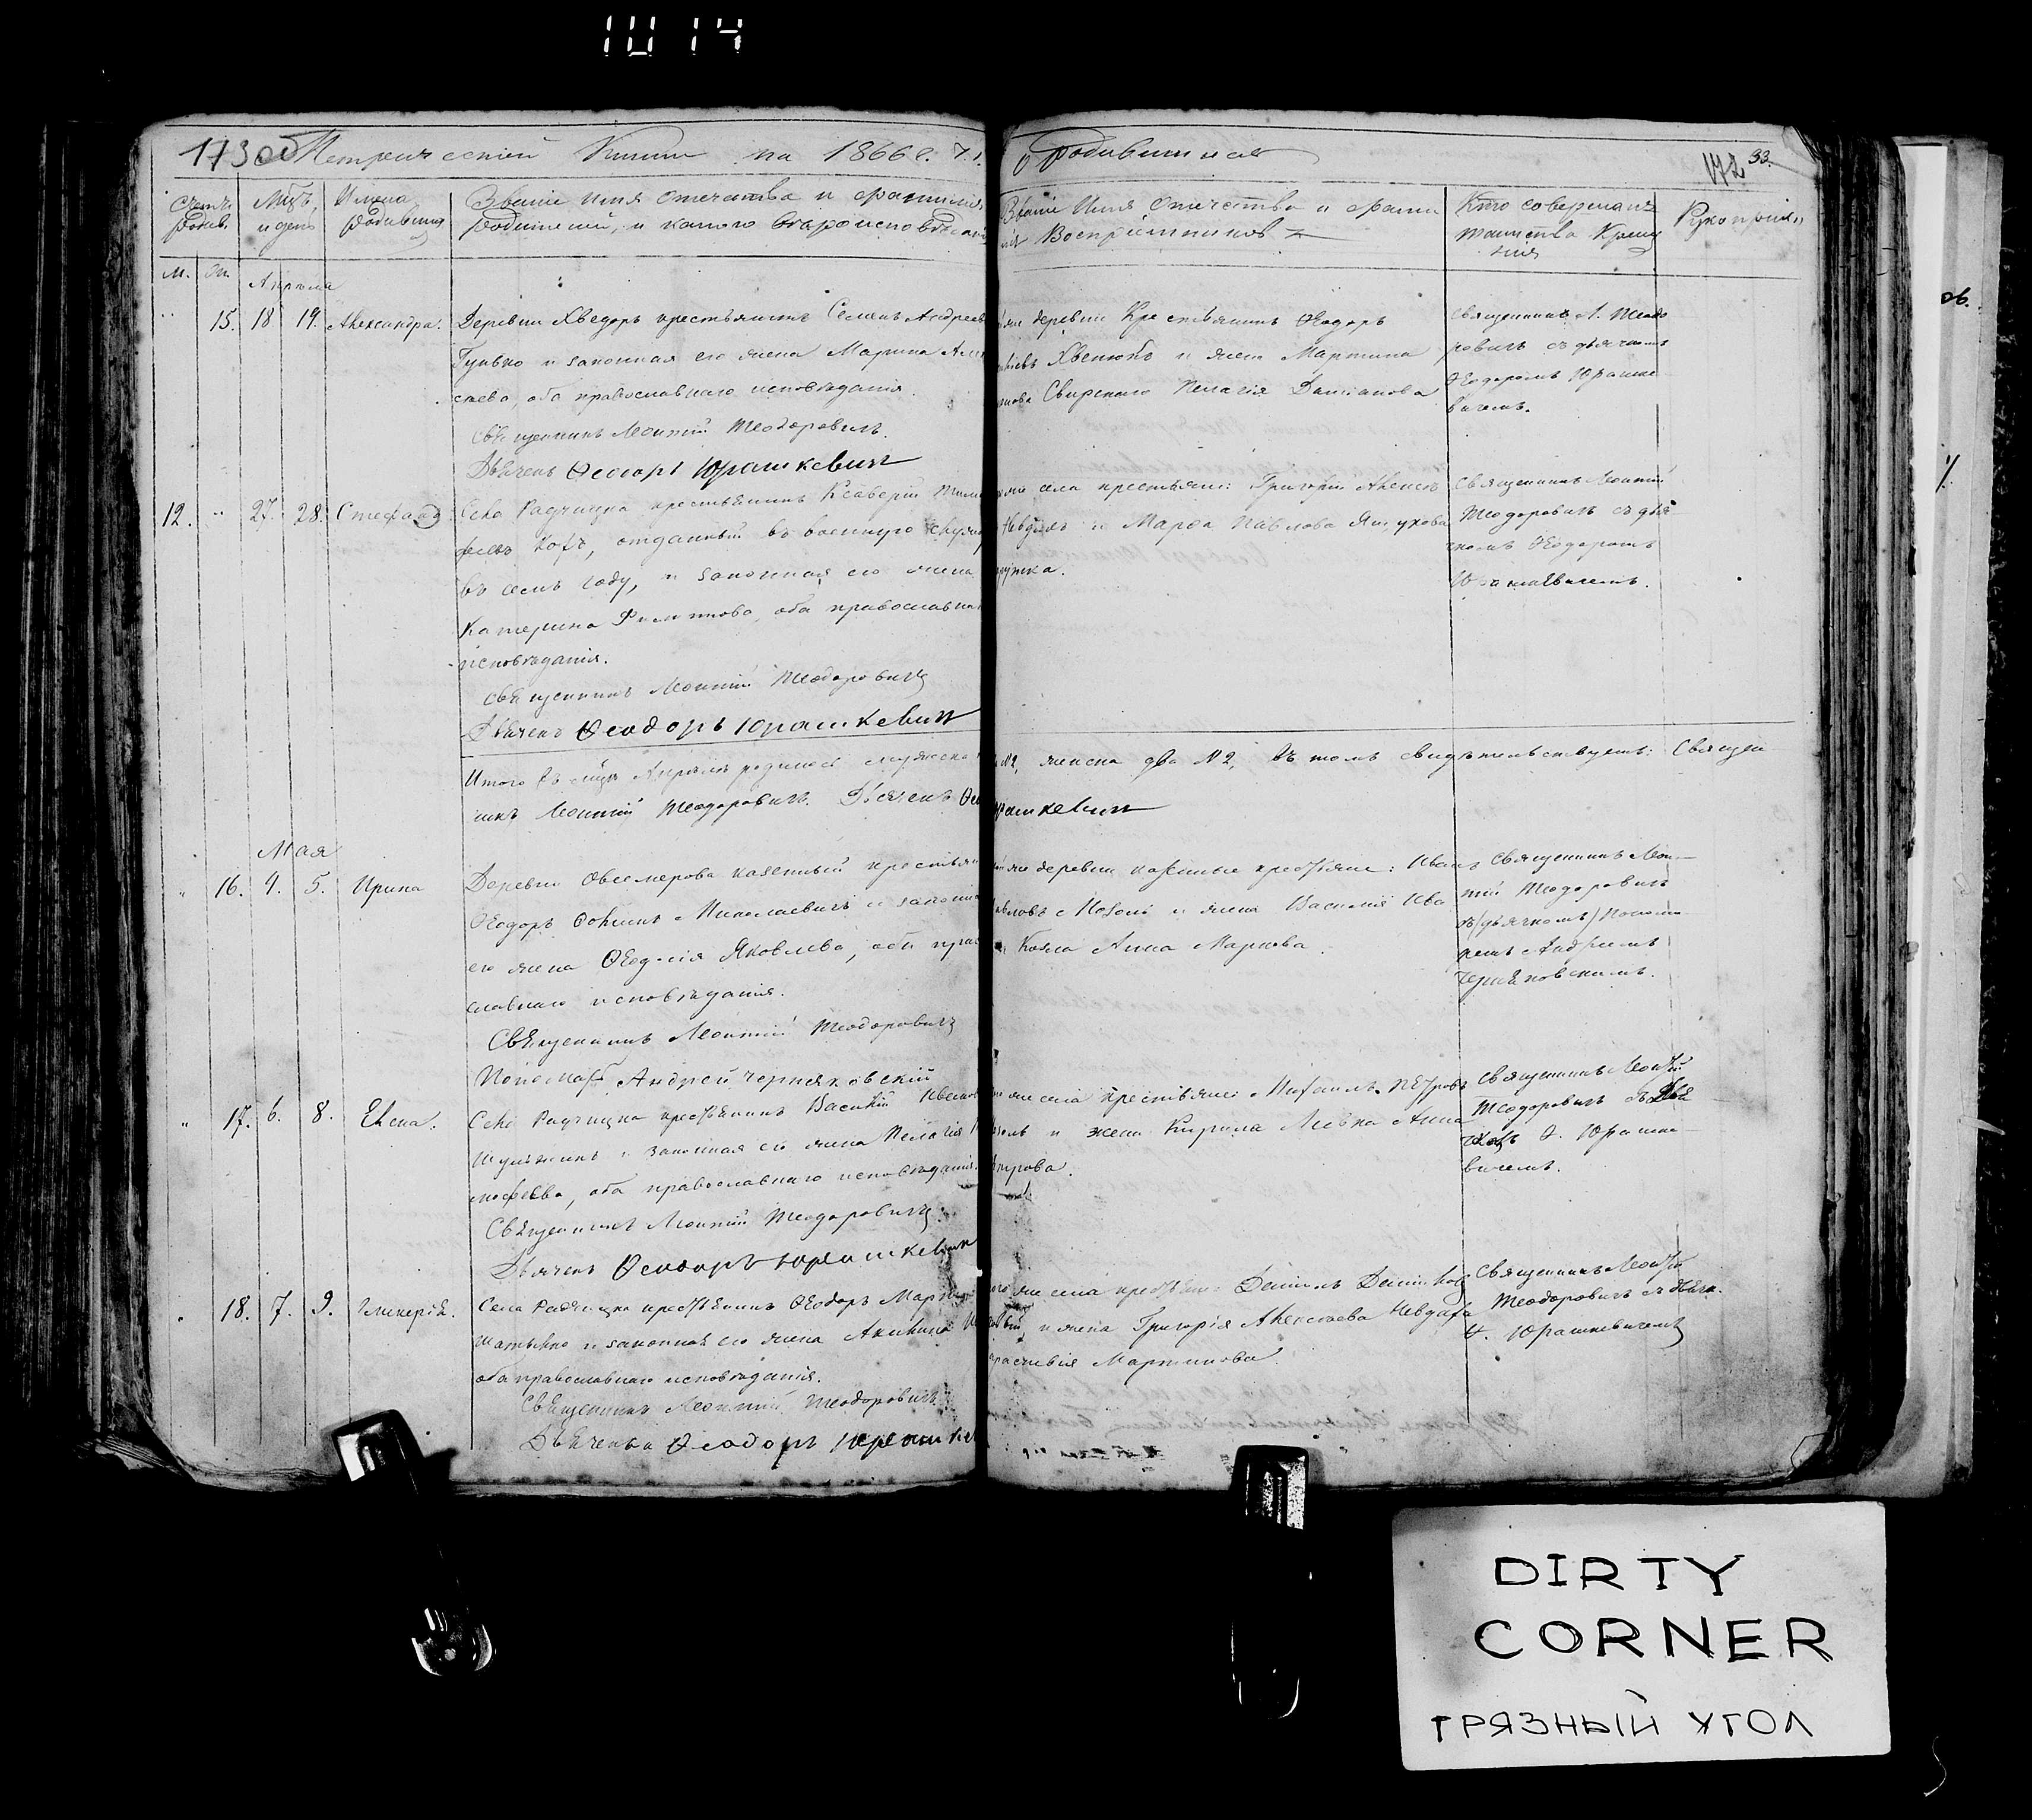 1014
173 об Метрической Книги на 1866 г. Ч. 1.
о родившихся
172 33.
Счетъ родив.
Мцъ, и день
Имена родившихся
Званіе имя отчество и фамилія
родителей, и какого вѣроисповѣданія
Званіе Имя Отчество и фами
лія Воспріемниковъ
Кто совершалъ
таинство Креще
нія
Рукоприк.
М. Ж.
Апрѣля
15. 18 19. Александра.
Деревни Хведоръ крестьянинъ Семенъ Андреевъ
Гунько и законная его жена Марина Але
ксѣева, оба православнаго исповѣданія.
Священникъ Леонтій Теодоровичъ.
Дьячекъ Ѳеодоръ Юрашкевичъ
деревни Крестьянинъ Ѳеодоръ
Хвенюкъ и жена Мартина
Свирскаго Пелагія Даміанова
Священникъ Л. Теодо
ровичъ съ дьячкомъ
Ѳеодоромъ Юрашке
вичемъ.
12. 27. 28. Стефанъ.
Села Радчицка крестьянинъ Ксаверій Тимо
фѣевъ, отданный въ военную службу
въ семъ году, и законная его жена
Катерина Филипова, оба православнаго
исповѣданія.
Священникъ Леонтій Теодоровичъ
Дьячекъ Ѳеодоръ Юрашкевичъ
села крестьяне: Григорій Алексѣ
Невдахъ и Марѳа Павлова
Священникъ Леонтій
Теодоровичъ съ дья
чкомъ Ѳеодоромъ
Юрашкевичемъ.
Итого въ мцѣ Апрѣлѣ родилось мужеска
№2, женска два №2, въ томъ свидѣтельствуетъ: Священ
никъ Леонтій Теодоровичъ. Дьячекъ Ѳео
рашкевичъ
Мая
16. 4. 5. Ирина
Деревни Овсемерова казенный крестьян
Ѳеодоръ Николаевичъ и законная
его жена Ѳеодосія Яковлева, оба право
славнаго исповѣданія.
Священникъ Леонтій Теодоровичъ
Пономарь Андрей Черняковскій
деревни казенные крестьяне: Иванъ
и жена Василія Ива
Козла Анна Маркова.
Священникъ Леон
тій Теодоровичъ
съ (дьячкомъ) Понома
ремъ Андреемъ
Черняковскимъ.
17. 6. 8. Елена.
Села Радчицка крестьянинъ Василій
и законная его жена Пелагія
мофеева, оба православнаго исповѣданія.
Священникъ Леонтій Теодоровичъ.
Дьячекъ Ѳеодоръ Юрашкевичъ
села крестьяне: Михаилъ Петровъ
и жена Кирила Левка Анна
Священникъ Леонтій
Теодоровичъ съ Дья
Ѳ. Юрашке
вичемъ.
18. 7. 9. Гликерія.
Села Радчицка крестьянинъ Ѳеодоръ Март
и законная его жена Акилина
оба православнаго исповѣданія.
Священникъ Леонтій Теодоровичъ.
Дьячекъ Ѳеодоръ Юрашкев
села крестьяне: Даніилъ
и жена Григорія Алексѣева Невдаха
Мартинова.
Священникъ Леонтій
Теодоровичъ съ Дьяч.
Ѳ. Юрашкевичемъ
DIRTY
CORNER
ГРЯЗНЫЙ УГОЛ